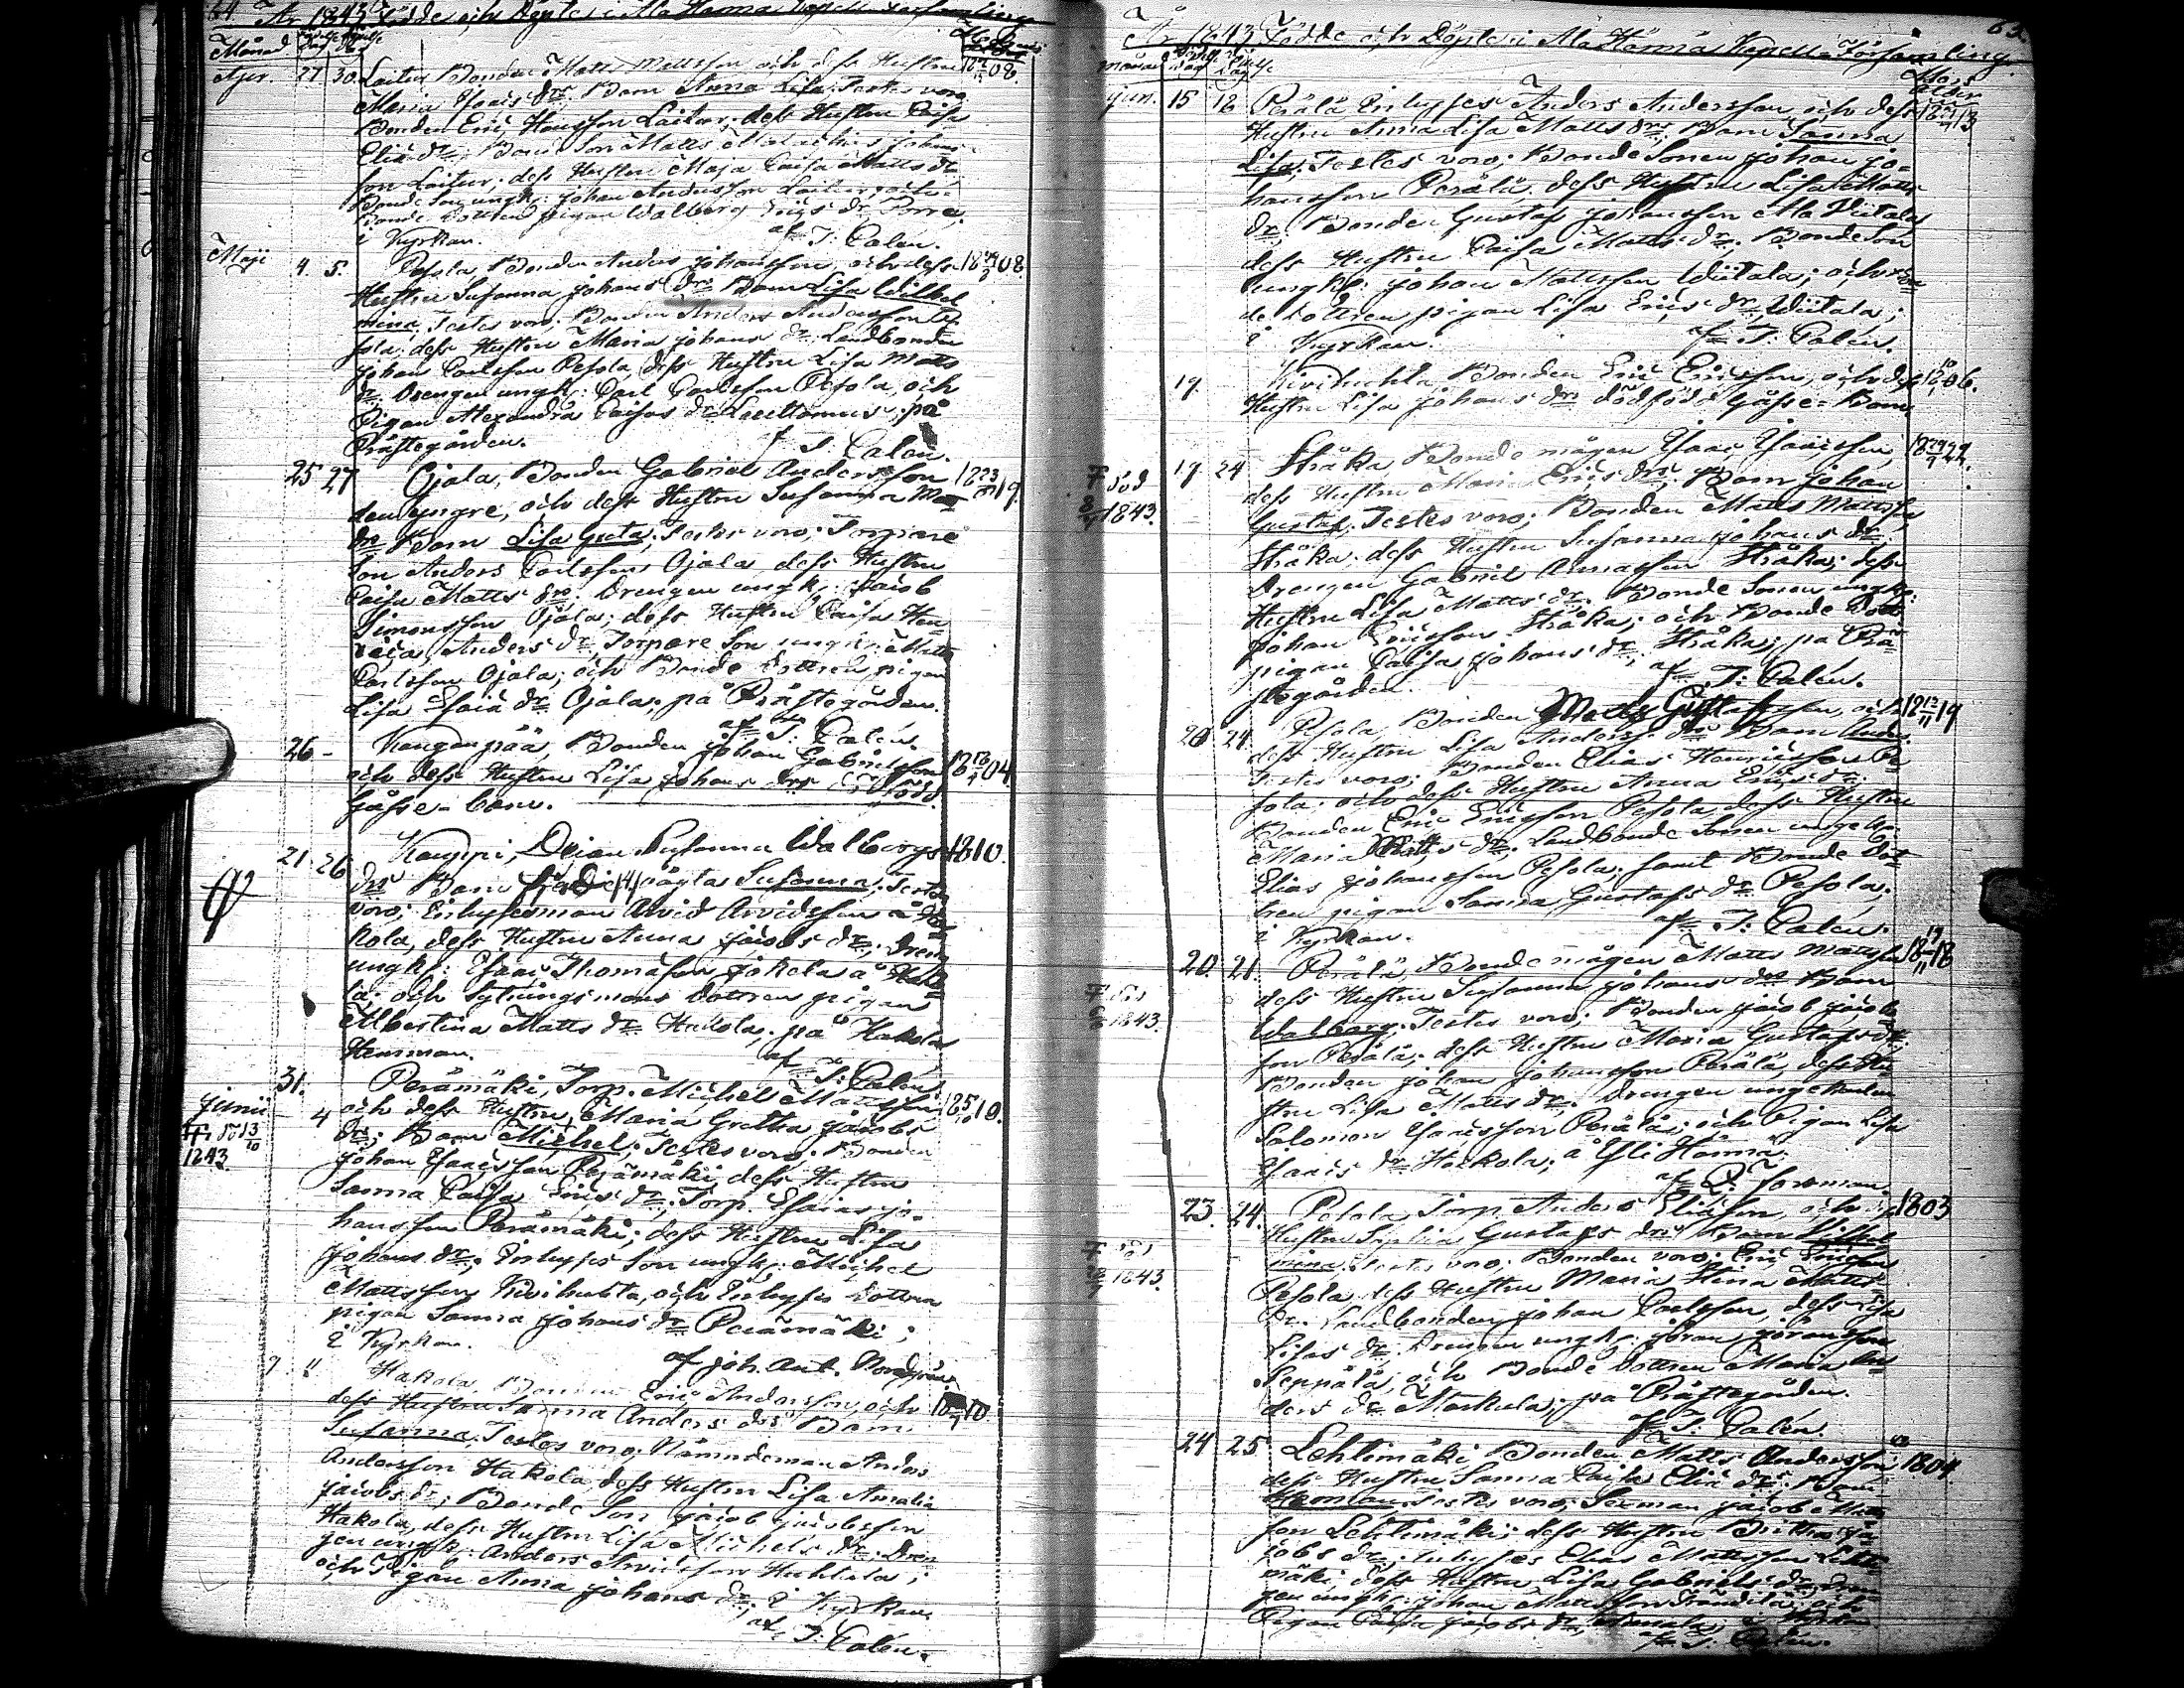 64 År 1843 Födde och Döpte i Ala Härmä Capell Församling
Månad
Apr. 27 30 Laitur Bonden Matts Mattsson och dess Hustru 18 08.
Maria Isacs dr; Barn Anna Lisa; Testes voro
Bonden Eric Hansson Laitur; dess Hustru Caisa
Eliæ dr; Bonde Son Matts Johans-
son Laitur; dess Hustru Maja Caisa Matts dr
Bonde Son ungk: Johan Andersson Laitur, och
Bonde Dottren pigan Walborg Erics dr Porre,
i Kyrkan. af J: Calén.
Maji 4. 5. Pesola, Bonden Anders Johansson, och dess 18 08.
Hustru Susanna Johans drs Barn Lisa Wilhel
mina; Testes voro; Bonden Anders Andersson Pe
sola; dess Hustru Maria Johans dr; Landbonden
Johan Carlsson Pesola, dess Hustru Lisa Matts
dr. Drengen ungk: Carl Carlsson Pesola, och
Pigan Alexandra Caisas dr på
Prästegården. af J: Calén.
25 27 Ojala, Bonden Gabriel Andersson 18 19
den yngre, och dess Hustru Susanna Matts
drs Barn Lisa Greta; Testes voro; Torpare
Son Anders Carlsson Ojala dess Hustru
Caisa Matts dr: Drengen ungk: Jacob
Simonsson Ojala; dess Hustru Caisa Hen
rica Anders dr; Torpare Son ungk: Matts
Carlsson Ojala; och Bonde Dottren pigan
Lisa Esaiæ dr Ojala; på Prästegården.
af J: Calén.
26 - Kangenpää, Bonden Johan Gabrielsson 18 04
och dess Hustru Lisa Johans drs dödfödd
Gåsse-barn.
21 26 Kauppi, Deian Susanna Walborgs 1810.
drs Barn oägta Susanna; Testes
voro; Inhysesman Arvid Arvidsson å Ha
kola, dess Hustru Anna Jacobs dr; Dreng
ungk: Isaac Thomasson Jokela å Hako
la; och Sytningsmans Dottren pigan
Albertina Matts dr Hakola, på Hakola
Hemman. af J: Calén
31. Perämäki, Torp. Michel Mattsson 18 10.
Junii 4 och dess Hustru Maria Gretha Jacobs
dr; Barn Michel; Testes voro; Bonden
1843 Johan Isacsson Perämäki, dess Hustru
Sanna Caisa Erics dr; Torp. Esaias Jo-
hansson Perämäki; dess Hustru Lisa
Johans dr; Inhyses Son ungk: Michel
Mattsson Kivihuhta, och Inhyses Dottren
pigan Sanna Johans dr Perämäki;
i Kyrkan. af Joh. Ant.
7. " Hakola, Bonden Eric Andersson och 18 10
dess Hustru Sanna Anders drs Barn
Susanna; Testes voro; Nämndeman Anders
Andersson Hakola, dess Hustru Lisa Amalia
Jacobs dr; Bonde Son Jacob Jacobsson
Hakola, dess Hustru Lisa Michels dr; Dren
gen ungk: Anders Arvidsson Huhtala;
och Pigan Anna Johans dr, i Kyrkan
af J: Calén.
65.
År 1843 Födde och Döpte i Ala Härmä Capell Församling.
Månad
Jun. 15 18 Perälä Inhyses Anders Andersson, och dess 18 13
Hustru Anna Lisa Matts drs; Barn Sanna
Lisa; Testes voro; Bonde Sonen Johan Jo-
hansson Perälä, dess Hustru Lisa Matts
dr; Bonden Gustaf Johansson Ala Viitala,
dess Hustru Caisa Matts dr; Bonde Son
ungk: Johan Mattsson Wiitala; och Bon
de Dottren pigan Lisa Erics dr, Wiitala;
i Kyrkan. af J: Calén.
19. Kivihuhta, Bonden Eric Ericsson, och dess 18 06.
Hustru Lisa Johans drs dödfödd Gåsse-Barn
Död 1843. 19 24 Stråka, Bonde mågen Isaac Isacsson, 18 22.
dess Hustru Maria Erics drs; Barn Johan
Gustaf; Testes voro; Bonden Matts Mattsson
Stråka; dess Hustru Susanna Johans dr;
Drengen Gabriel Stråka; dess
Hustru Lisa Matts dr; Bonde Sonen ungk:
Johan Ericsson Stråka; och Bonde Dott
pigan Caisa Johans dr, Stråka; på Prä
stegården. af J: Calén.
20 24 Pesola, Bonden Matts Gustafsson, och 18 19
dess Hustru Lisa Anders drs Barn
Testes voro; Bonden Elias Henricsson Pe
sola; och dess Hustru Anna Erics dr
Bonden Eric Ericsson Pesola, dess Hustru
Maria Matts dr; Landbonde Sonen ungk:
Elias Johansson Pesola; samt Bonde Dot
tren pigan Sanna Gustafs dr Pesola;
i Kyrkan. af J: Calén.
1843. 20. 21. Perälä, Bonde mågen Matts Mattsson 18 18
dess Hustru Susanna Johans drs Barn
Walborg; Testes voro; Bonden Jacob Jacobs
son Perälä; dess Hustru Maria Gustafs dr;
Bonden Johan Johansson Perälä, dess Hu
stru Lisa Matts dr; Drengen ungkarlen
Salomon Isacsson Perälä; och Pigan Lisa
Isacs dr Hakola; å Yli Härmä.
af
1843. 23. 24. Pesola, Torp. Anders Eliasson, och dess 1803
Hustru Sophia Gustafs drs Barn Wilhel
mina; Testes voro; Bonden voro; Eric Ericsson
Pesola, dess Hustru Maria Stina Matts
dr. Landbonden Johan Carlsson, dess Lisa
dr; Drengen ungk: Jöran Jöransson
Seppälä, och Bonde Dottren Maria An
ders dr Markula; på Prästegården.
af J: Calén.
24 25 Lehtimäki, Bonden Matts Andersson 1804
dess Hustru Sanna Caisa Eliæ drs Barn
Herman; Testes voro; Sexman Jacob Matts
son Lehtimäki; dess Hustru Brita Ja
cobs dr; Inhyses Elias Mattsson Lehti
mäki dess Hustru Lisa Gabriels dr; Dren
gen ungk: Johan Mattsson och
Pigan Caisa Jacobs dr,
af J: Calén.